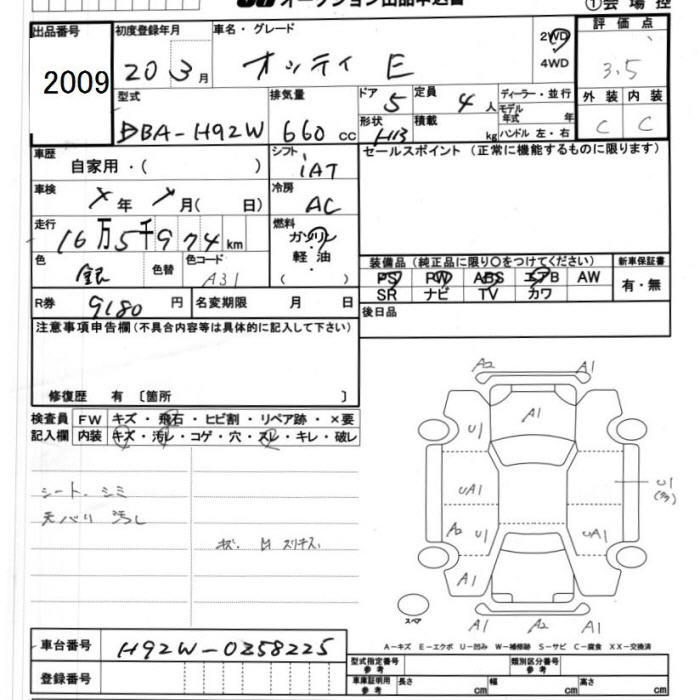 オークション出品申込書
①会場控
出品番号
2009
初度登録年月
20 3月
車名・グレード
オッティ E
2WD
4WD
評価点
3.5
型式
DBA-H92W
排気量
660 cc
ドア
5
形状
HB
定員
4人
積載
kg
ディーラー・並行
モデル年式 年
ハンドル 左・右
外装 内装
C C
車歴
自家用・( )
シフト
iAT
セールスポイント (正常に機能するものに限ります)
車検
年 月( 日)
冷房
AC
走行
16万5千974km
燃料
ガソリン
軽油
( )
色
銀
色替
色コード
A31
装備品 (純正品に限り○をつけてください)
新車保証書
PS PW ABS エアB AW
SR ナビ TV カワ
有・無
R券
9180円
名変期限 月 日
後日品
注意事項申告欄 (不具合内容等は具体的に記入して下さい)
修復歴 有 〔箇所 〕
検査員記入欄
FW キズ・飛石・ヒビ割・リペア跡・×要
内装 キズ・汚レ・コゲ・穴・スレ・キレ・破レ
シート、シミ
天バリ 汚レ
A2 A1
A1
U1
UA1
U1
(多)
A2 U1
UA1
A1
A1 A2 A1
スペア
A-キズ E-エクボ U-凹み W-補修跡 S-サビ C-腐食 XX-交換済
車台番号
H92W-0258225
登録番号
型式指定番号 参考
類別区分番号 参考
車庫証明用 参考
長さ cm
幅 cm
高さ cm